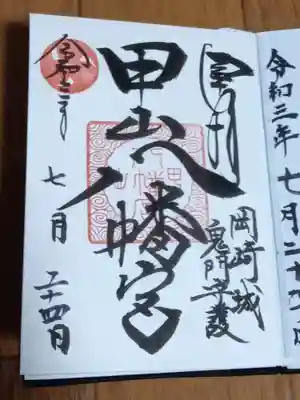 奉拝
岡崎城
鬼門守護
甲山八幡宮
令和三年
七月
二十四日
令和三年七月二十